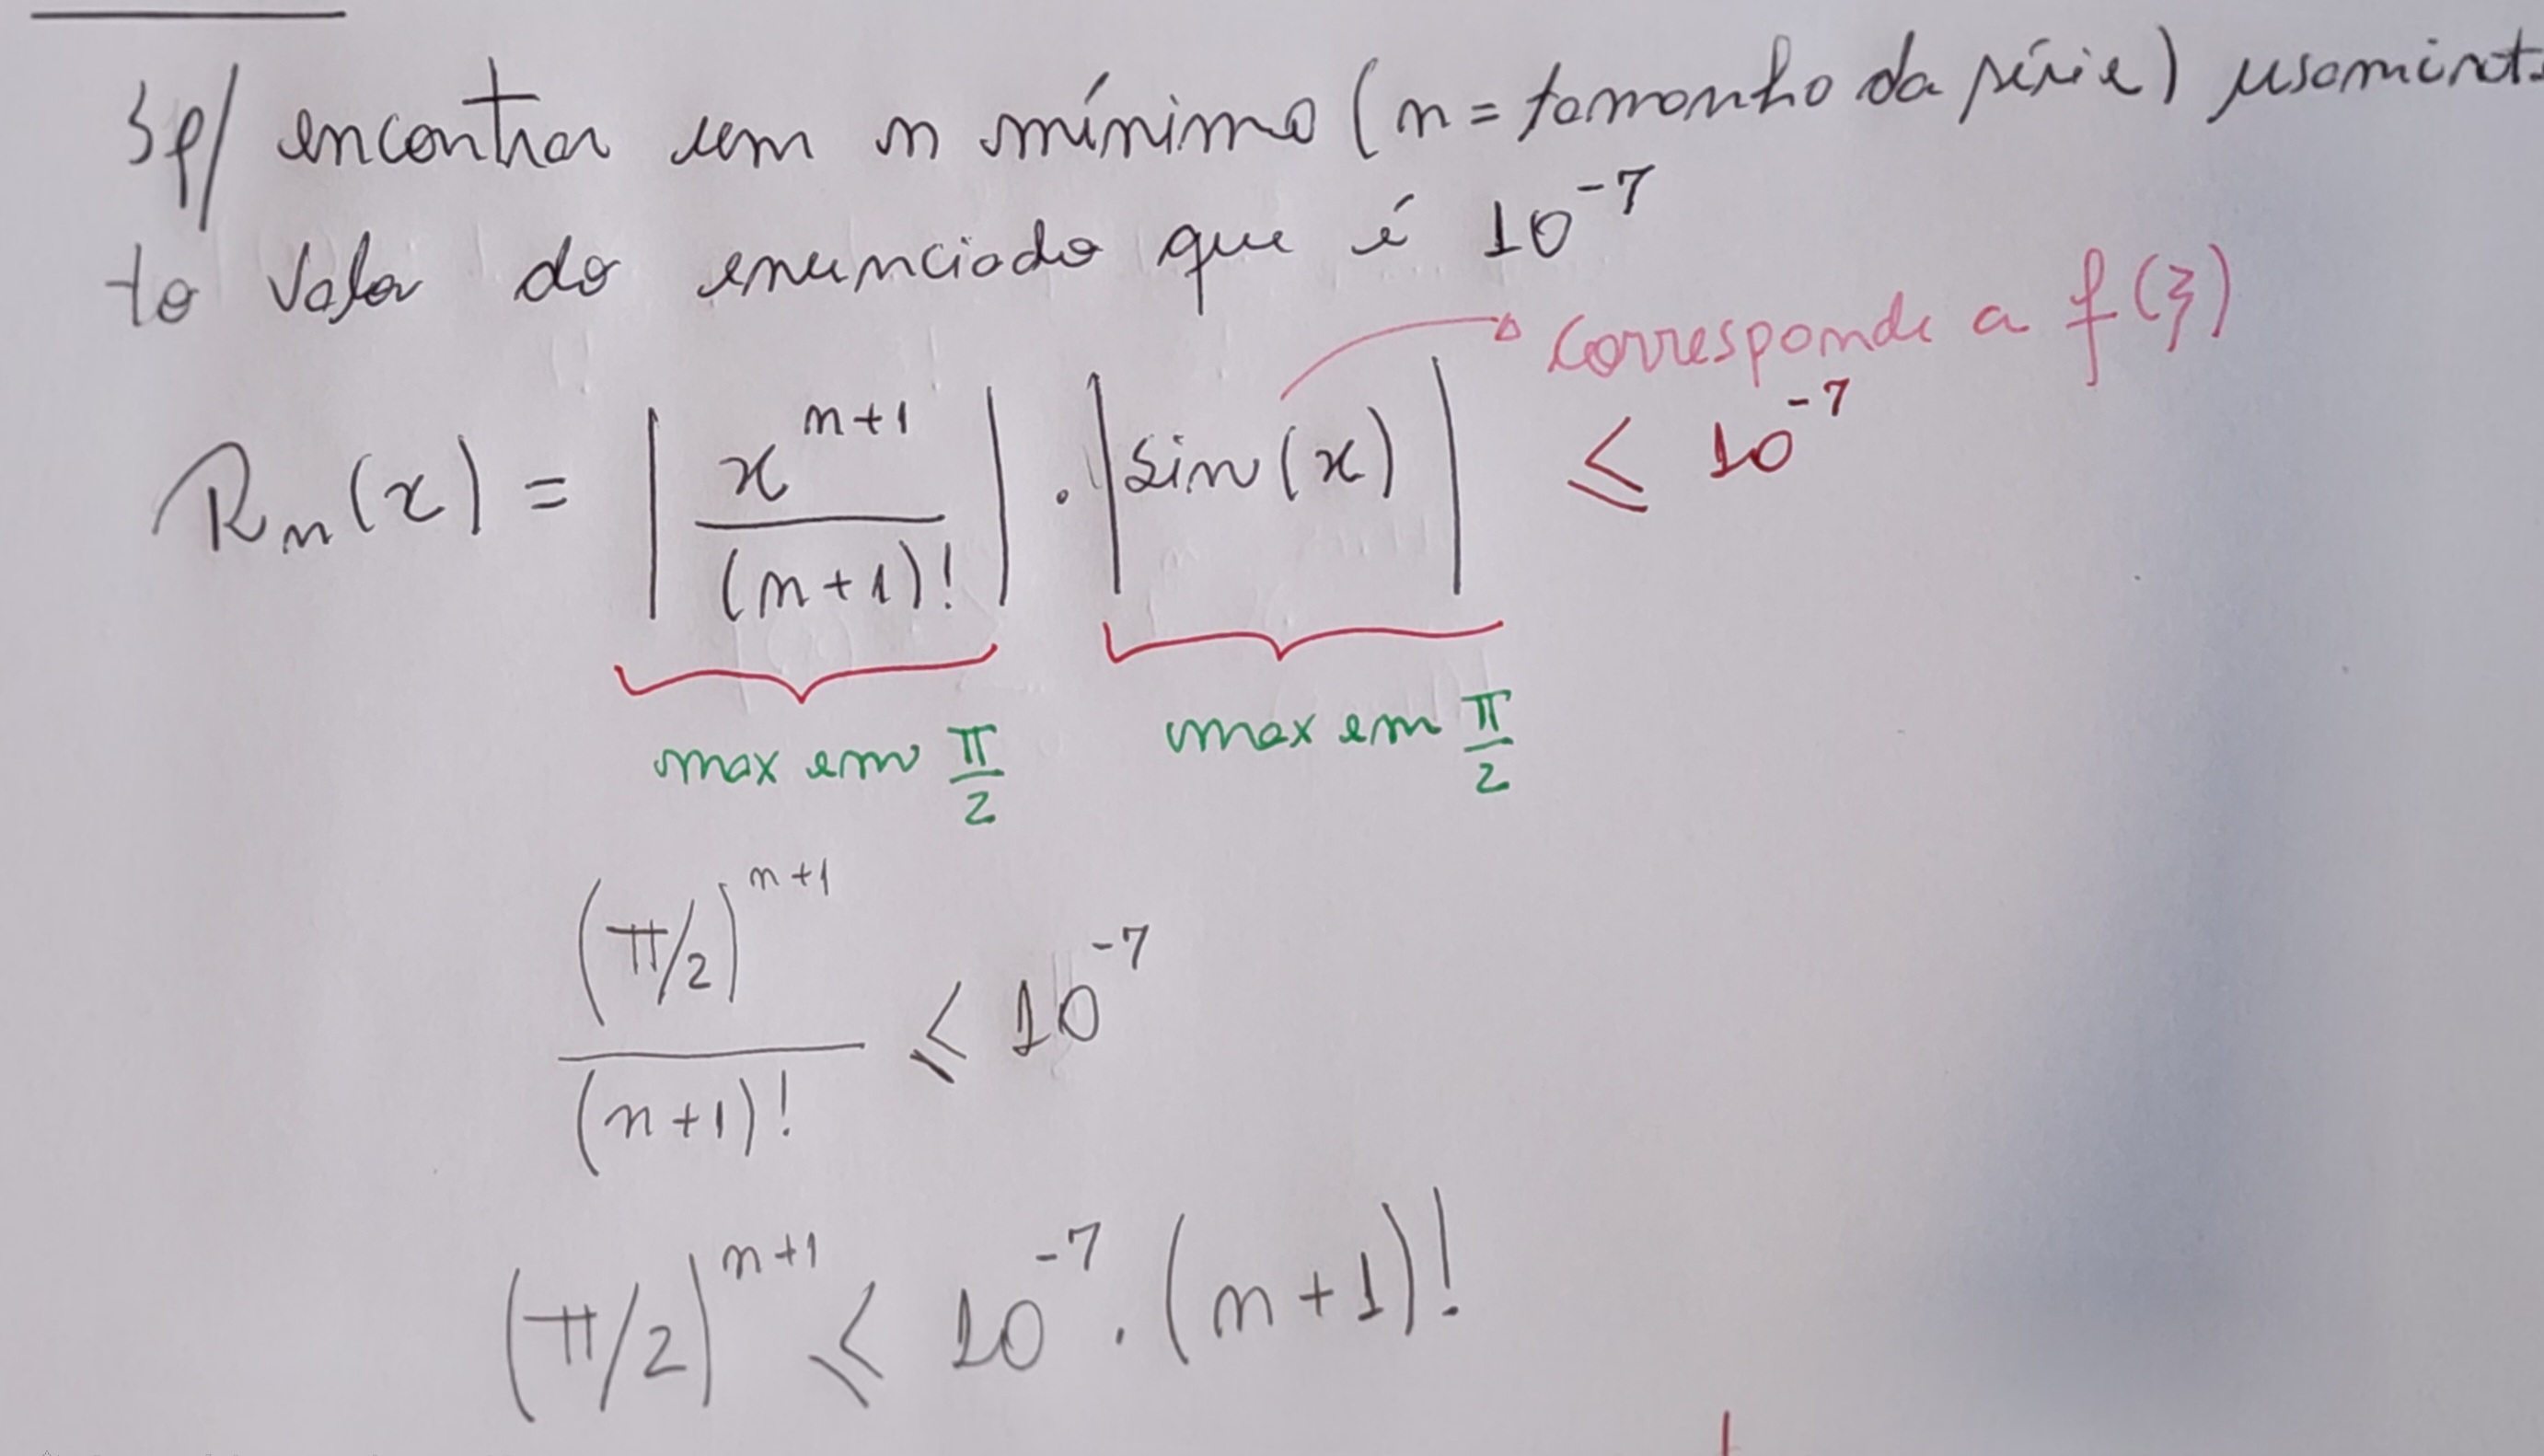 3p/ encontrar um n mínimo (n = tamanho da série) usamint.
to valor do enunciado que é 10^-7
corresponde a f(ξ)
Rn(x) = | x^(n+1) / (n+1)! | · | sin(x) | ≤ 10^-7
max em π/2 max em π/2
(π/2)^(n+1) / (n+1)! ≤ 10^-7
(π/2)^(n+1) ≤ 10^-7 · (n+1)!